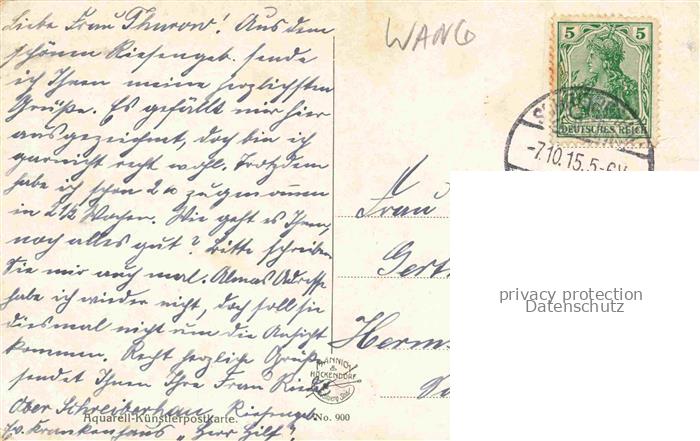 Liebe Frau Thurow! Aus dem
schönen Riesengeb. sende
ich Ihnen meine herzlichsten
Grüße. Es gefällt mir hier
ausgezeichnet, doch bin ich
garnicht recht wohl. Trotzdem
habe ich schon 2 zugenommen
in 2 1/2 Wochen. Wie geht es Ihnen,
noch alles gut? Bitte schreiben
Sie mir auch mal. Almas Adresse
habe ich wieder nicht, doch soll sie
diesmal nicht um die Ansicht
kommen. Recht herzliche Grüße
sendet Ihnen Ihre Frau
Ober Schreiberhau, Riesengeb.
Krankenhaus "Herr Hilf".
Aquarell-Künstlerpostkarte.
No. 900
MANNICH
&
HÖCKENDORF
WANG
5 5
DEUTSCHES REICH
-7.10.15.5-6V
Frau
Gert
Herm
privacy protection
Datenschutz